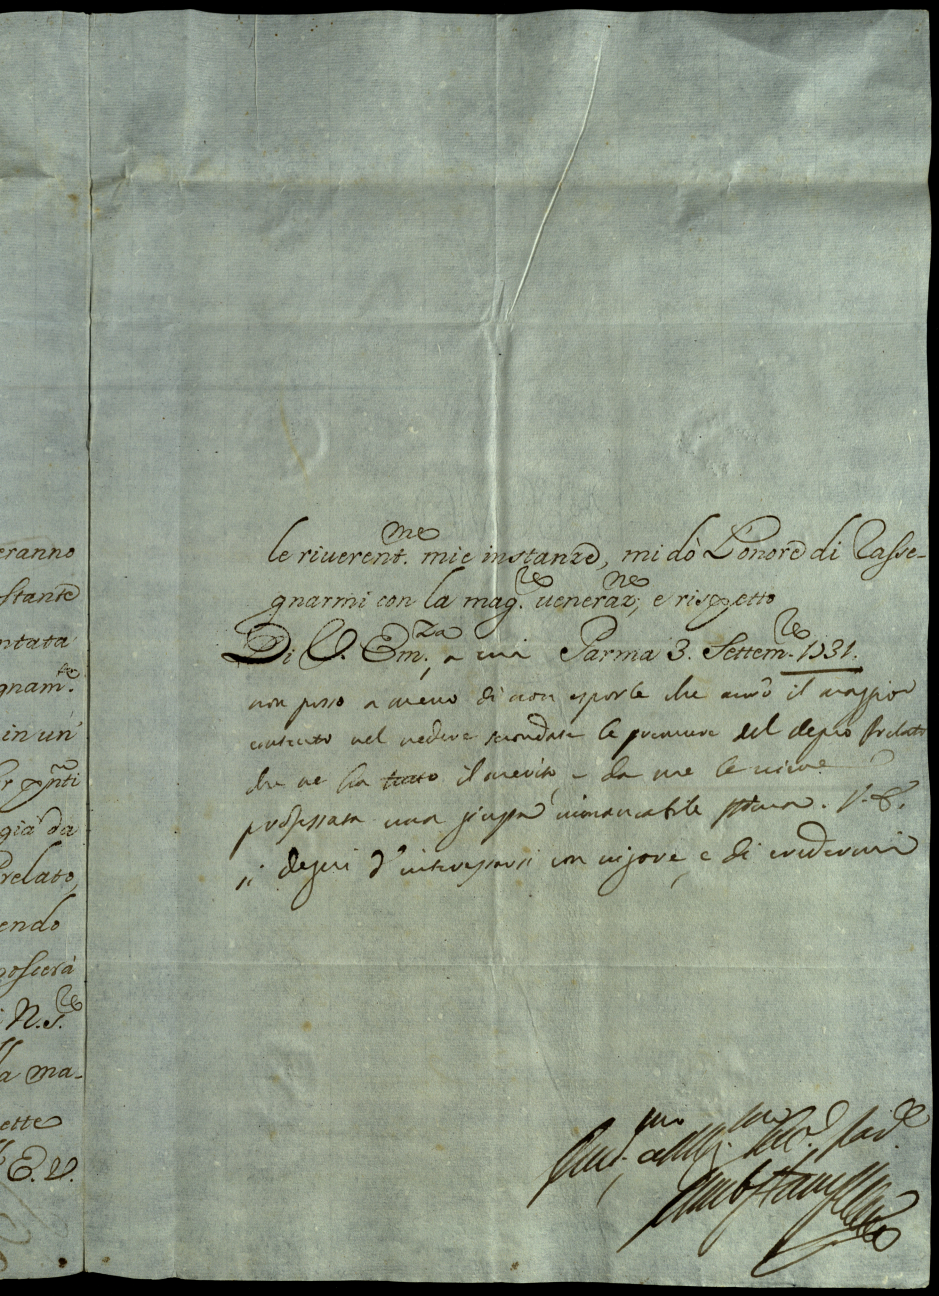 eranno
stante
ntata
gnam.to
in un
già da
Prelato,
endo
noscerà
N. S.re
la ma-
ette
E. V.
le riuerent.me mie instanze, mi dò L'onore di Rasse-
gnarmi con la mag.re ueneraz.ne, e rispetto
Di V. Em.za, Parma 3. Settem.re 1731.
non posso a meno di non esporle che aurò il maggior
contento nel vedere secondate le premure del degno Prelato
che ne ha tutto il merito, da me le viene
professata una giusta inmancabile stima. V. E.
si degni d'interessarsi con vigore, e di credermi